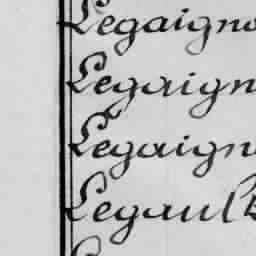 Legaigno
Legaign
Legaign
Legault